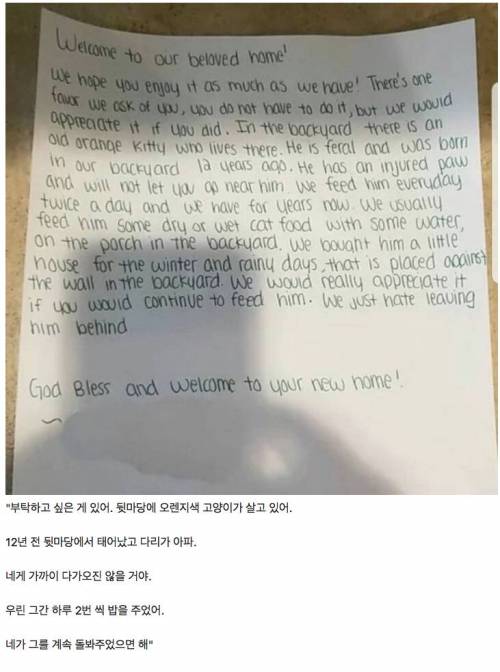 Welcome to our beloved home!
We hope you enjoy it as much as we have! There's one
favor we ask of you, you do not have to do it, but we would
appreciate it if you did. In the backyard there is an
old orange kitty who lives there. He is feral and was born
in our backyard 12 years ago. He has an injured paw
and will not let you go near him. We feed him everyday
twice a day and we have for years now. We usually
feed him some dry or wet cat food with some water,
on the porch in the backyard. We bought him a little
house for the winter and rainy days, that is placed against
the wall in the backyard. We would really appreciate it
if you would continue to feed him. We just hate leaving
him behind
God Bless and welcome to your new home!
"부탁하고 싶은 게 있어. 뒷마당에 오렌지색 고양이가 살고 있어.
12년 전 뒷마당에서 태어났고 다리가 아파.
네게 가까이 다가오진 않을 거야.
우린 그간 하루 2번 씩 밥을 주었어.
네가 그를 계속 돌봐주었으면 해"